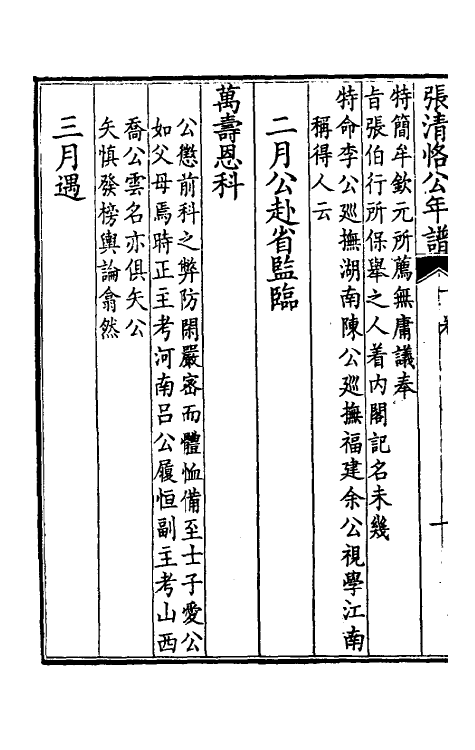 張清恪公年譜
特簡牟欽元所薦無庸議奉
旨張伯行所保舉之人着内閣記名未幾
特命李公廵撫湖南陳公廵撫福建余公視學江南
稱得人云
二月公赴省監臨
萬壽恩科
公懲前科之弊防閑嚴密而體恤備至士子愛公
如父母焉時正主考河南吕公履恒副主考山西
喬公雲名亦俱矢公
矢慎發榜輿論翕然
三月遇